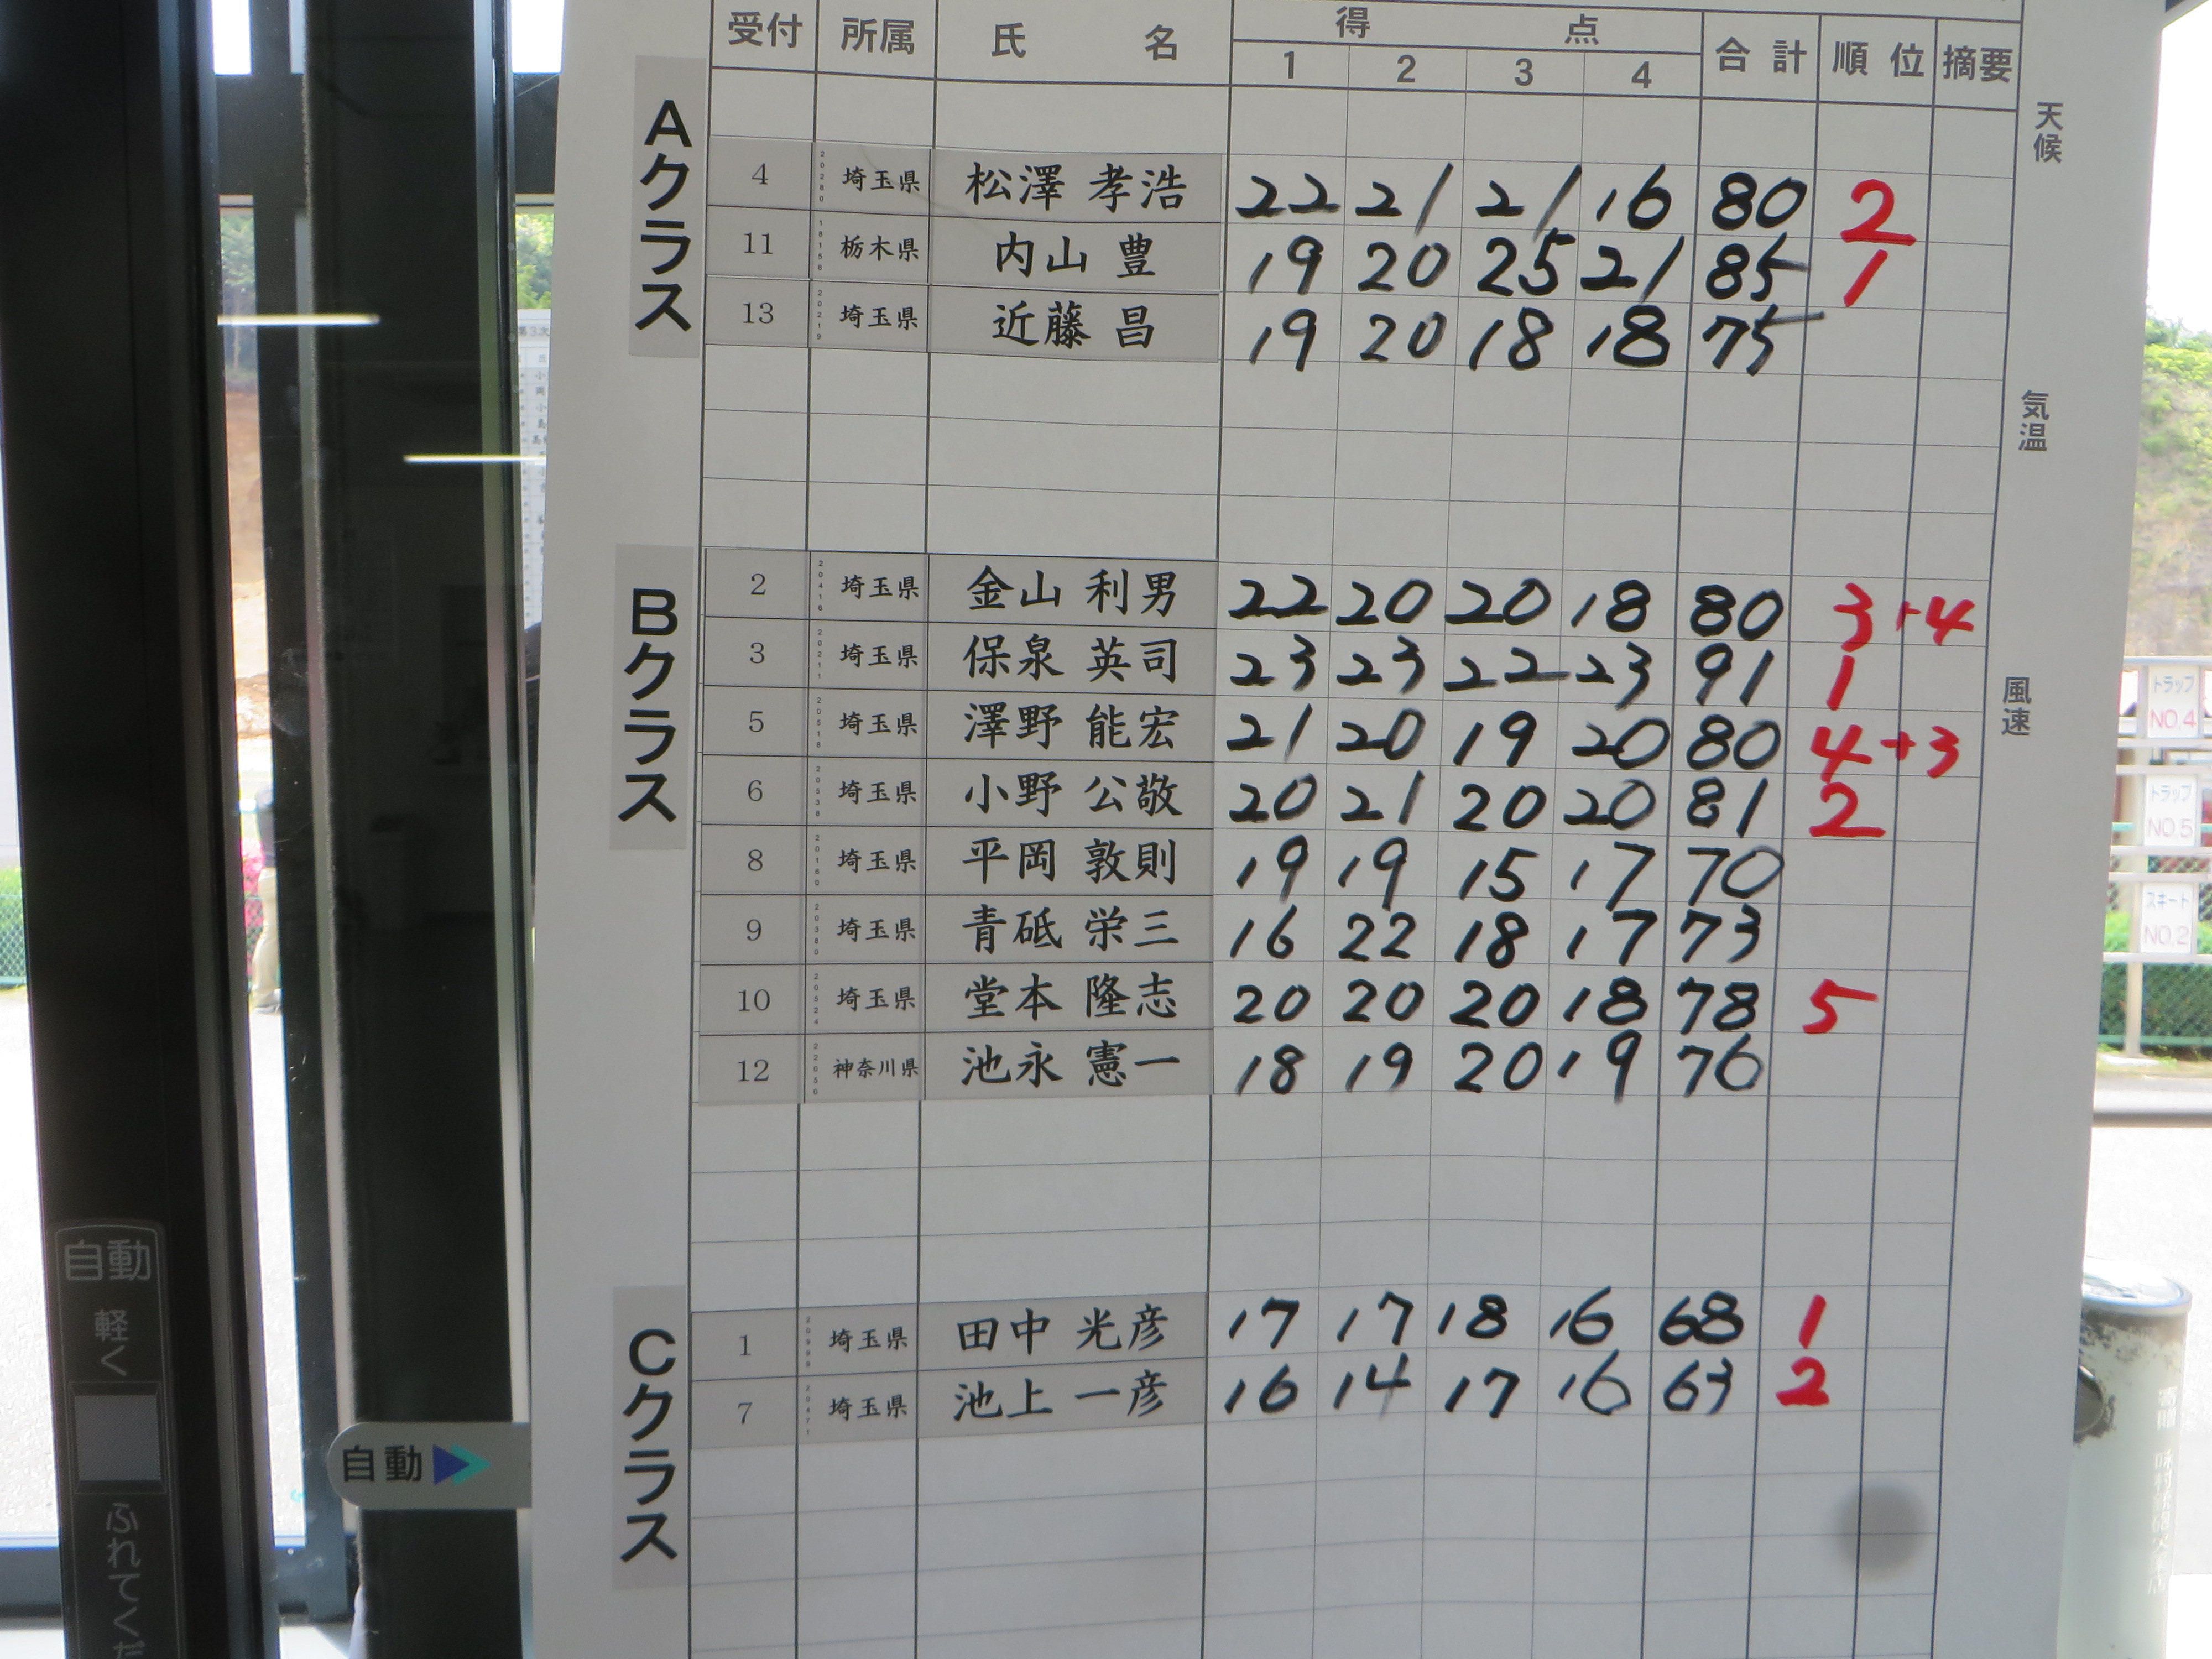 受付 所属 氏名 得点 合計 順位 摘要
1 2 3 4
Aクラス
4 埼玉県 松澤 孝浩 22 21 21 16 80 2
11 栃木県 内山 豊 19 20 25 21 85 1
13 埼玉県 近藤 昌 19 20 18 18 75
Bクラス
2 埼玉県 金山 利男 22 20 20 18 80 3 +4
3 埼玉県 保泉 英司 23 23 22 23 91 1
5 埼玉県 澤野 能宏 21 20 19 20 80 4 +3
6 埼玉県 小野 公敬 20 21 20 20 81 2
8 埼玉県 平岡 敦則 19 19 15 17 70
9 埼玉県 青砥 栄三 16 22 18 17 73
10 埼玉県 堂本 隆志 20 20 20 18 78 5
12 神奈川県 池永 憲一 18 19 20 19 76
Cクラス
1 埼玉県 田中 光彦 17 17 18 16 68 1
7 埼玉県 池上 一彦 16 14 17 16 63 2
天候
気温
風速
トラップ
NO.4
トラップ
NO.5
スキート
NO.2
自動
軽く
ふれてくだ
自動